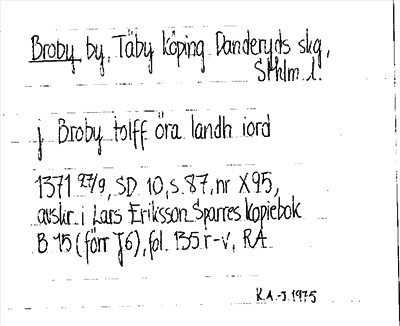 Broby by, Täby köping Danderyds skg,
Sthlm l.
j Broby tolff öra landh iord
1371 27/9, SD 10, s. 87, nr X95,
avskr. i Lars Eriksson Sparres kopiebok
B 15 (förr J6), fol. 135 r-v, RA
K.A.-J. 1975